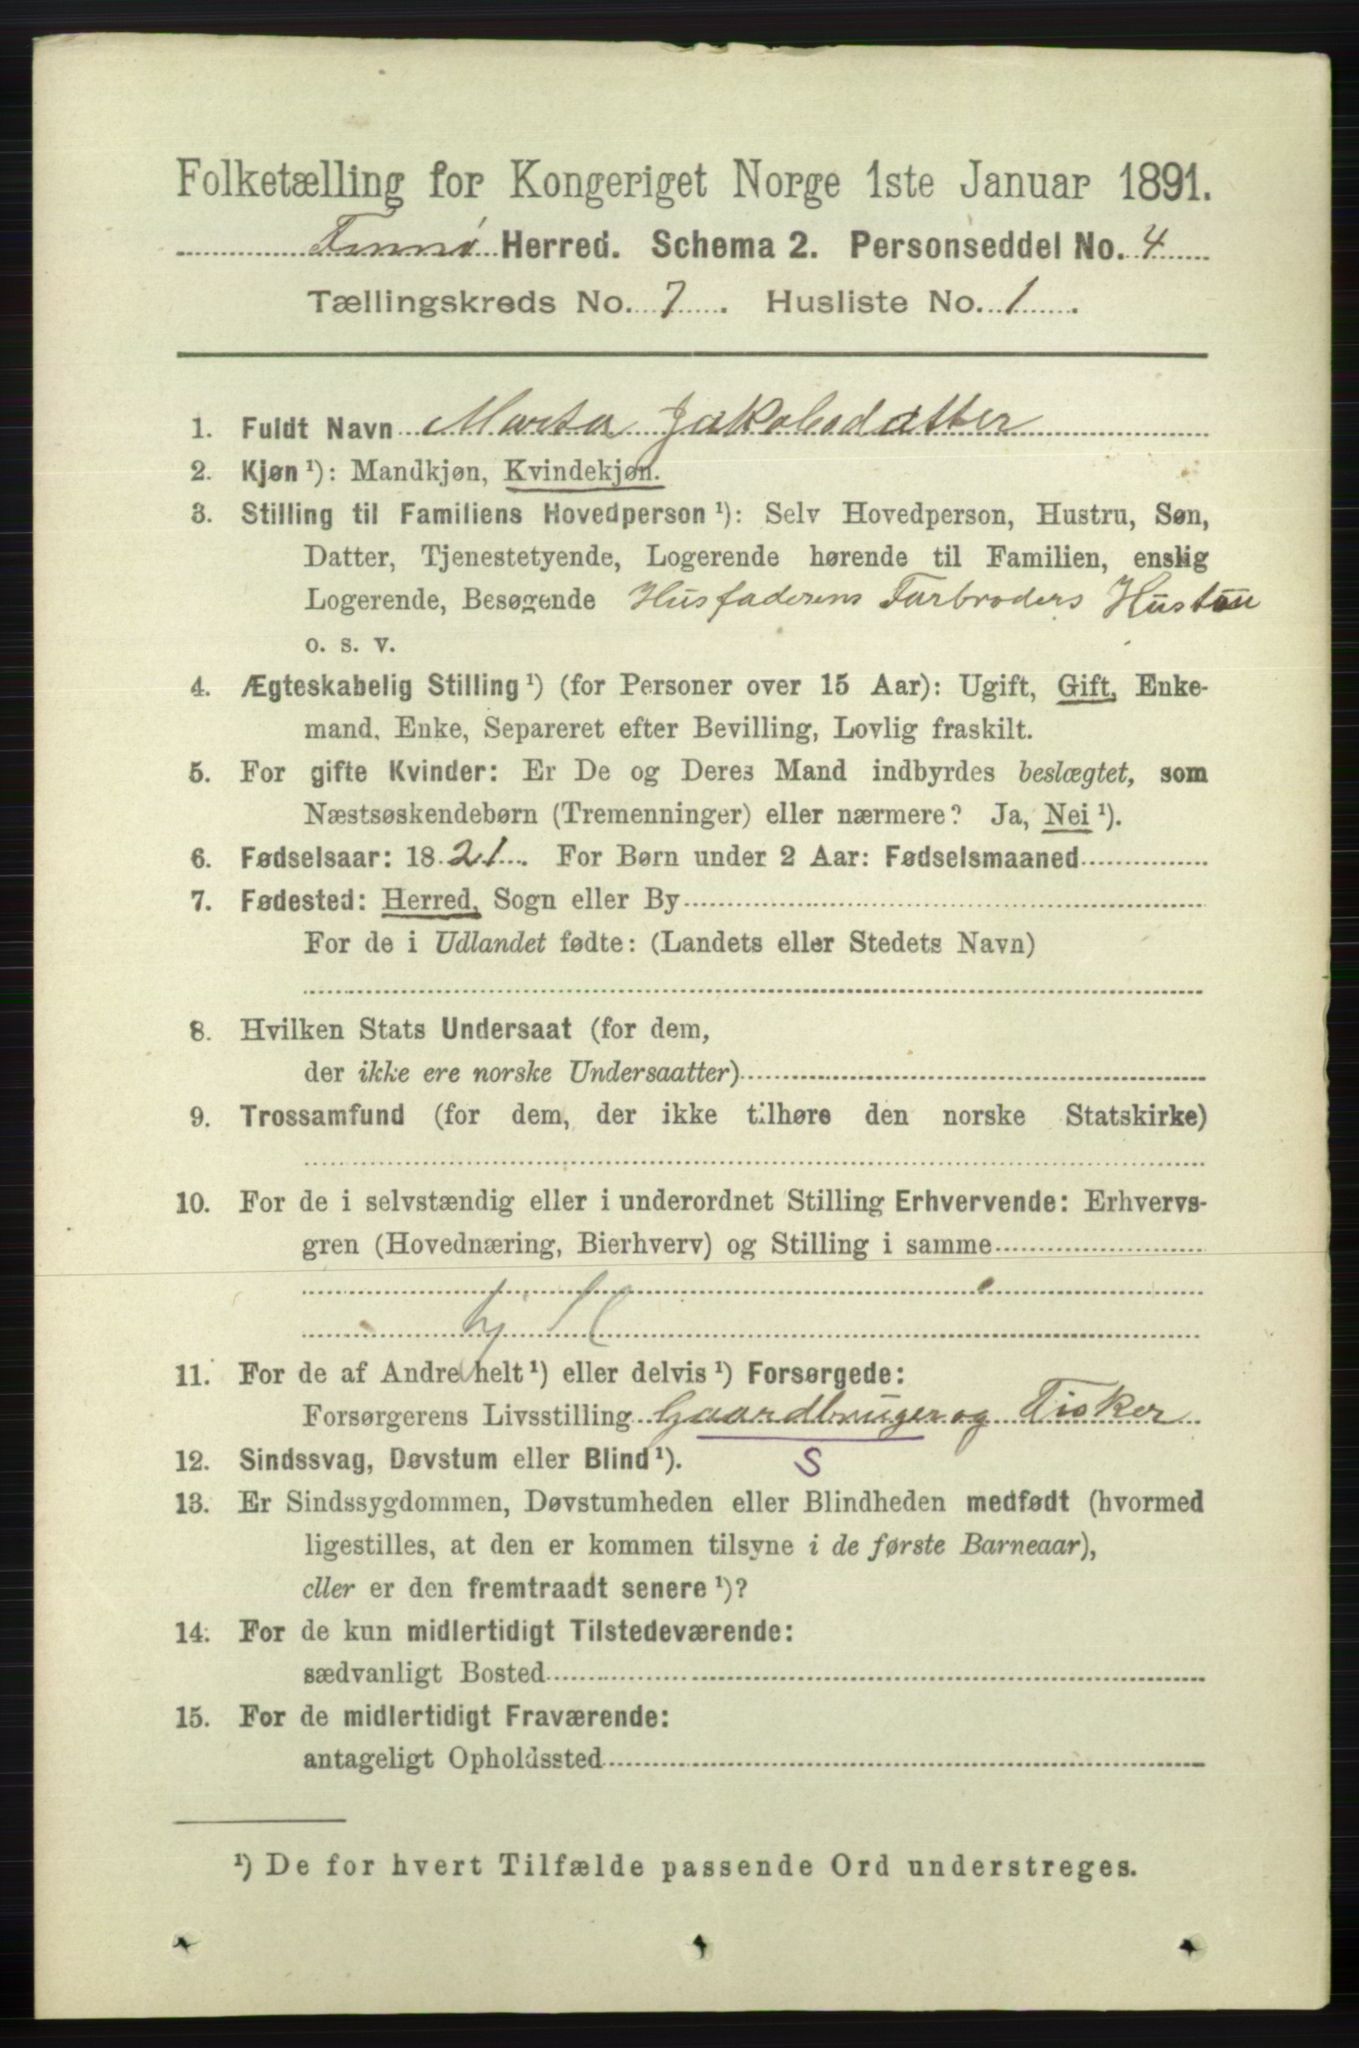 Folketælling for Kongeriget Norge 1ste Januar 1891.
Finnø Herred. Schema 2. Personseddel No. 4
Tællingskreds No. 7. Husliste No. 1.
1. Fuldt Navn Marta Jakobsdatter
2. Kjøn ¹): Mandkjøn, Kvindekjøn.
3. Stilling til Familiens Hovedperson ¹): Selv Hovedperson, Hustru, Søn,
Datter, Tjenestetyende, Logerende hørende til Familien, enslig
Logerende, Besøgende Husfaderens Farbroders Hustru
o. s. v.
4. Ægteskabelig Stilling ¹) (for Personer over 15 Aar): Ugift, Gift, Enke-
mand, Enke, Separeret efter Bevilling, Lovlig fraskilt.
5. For gifte Kvinder: Er De og Deres Mand indbyrdes beslægtet, som
Næstsøskendebørn (Tremenninger) eller nærmere? Ja, Nei ¹).
6. Fødselsaar: 1821. For Børn under 2 Aar: Fødselsmaaned
7. Fødested: Herred, Sogn eller By
For de i Udlandet fødte: (Landets eller Stedets Navn)
8. Hvilken Stats Undersaat (for dem,
der ikke ere norske Undersaatter)
9. Trossamfund (for dem, der ikke tilhøre den norske Statskirke)
10. For de i selvstændig eller i underordnet Stilling Erhvervende: Erhvervs-
gren (Hovednæring, Bierhverv) og Stilling i samme
11. For de af Andre helt ¹) eller delvis ¹) Forsørgede:
Forsørgerens Livsstilling Gaardbruger og Fisker
12. Sindssvag, Døvstum eller Blind ¹). S
13. Er Sindssygdommen, Døvstumheden eller Blindheden medfødt (hvormed
ligestilles, at den er kommen tilsyne i de første Barneaar),
eller er den fremtraadt senere ¹)?
14. For de kun midlertidigt Tilstedeværende:
sædvanligt Bosted
15. For de midlertidigt Fraværende:
antageligt Opholdssted
¹) De for hvert Tilfælde passende Ord understreges.